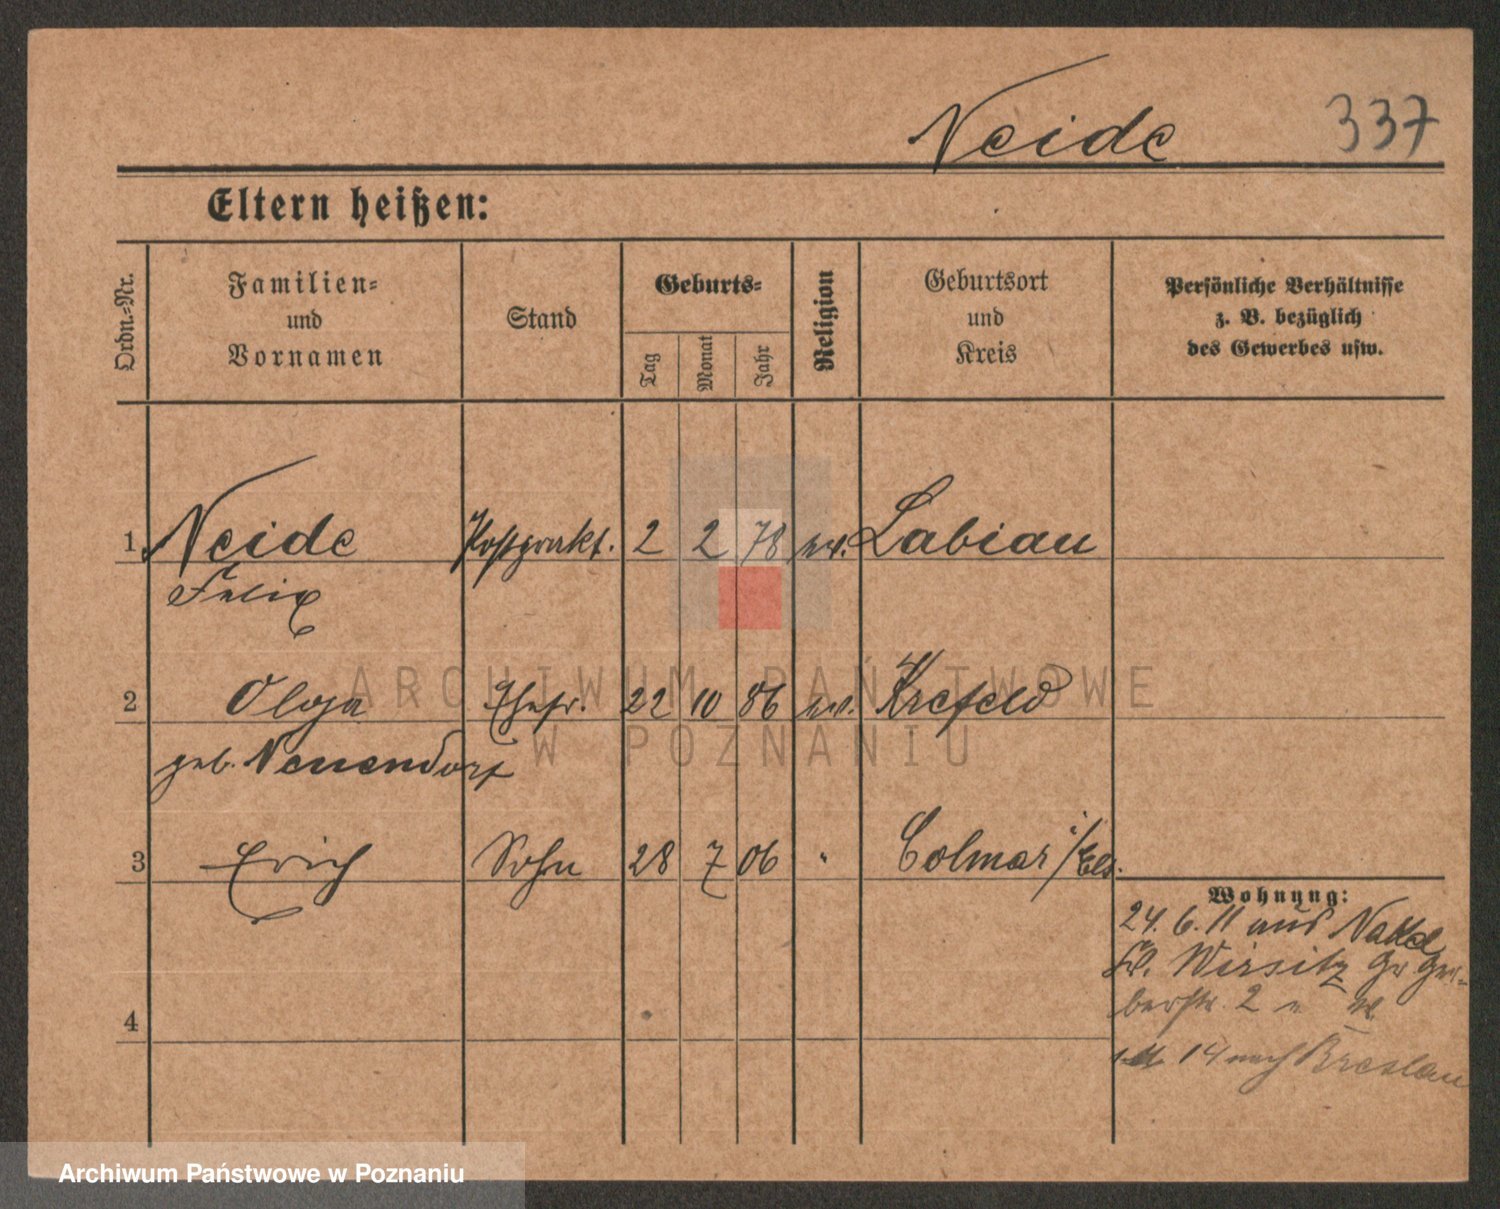 Neide 337
Eltern heißen:
Ordn.-Nr.
Familien-
und
Vornamen
Stand
Geburts-
Tag
Monat
Jahr
Religion
Geburtsort
und
Kreis
Persönliche Verhältnisse
z. B. bezüglich
des Gewerbes usw.
1 Neide Postprakt. 2 2 78 ev. Labiau
Felix
2 Olga Ehefr. 22 10 86 ev. Krefeld
geb. Neuendorf
3 Erich Sohn 28 7 06 " Colmar i/Els.
Wohnung:
24. 6. 11 aus Nakel
Kr. Wirsitz Gr Ger-
berstr. 2
4
14 nach Breslau
ARCHIWUM PAŃSTWOWE
W POZNANIU
Archiwum Państwowe w Poznaniu